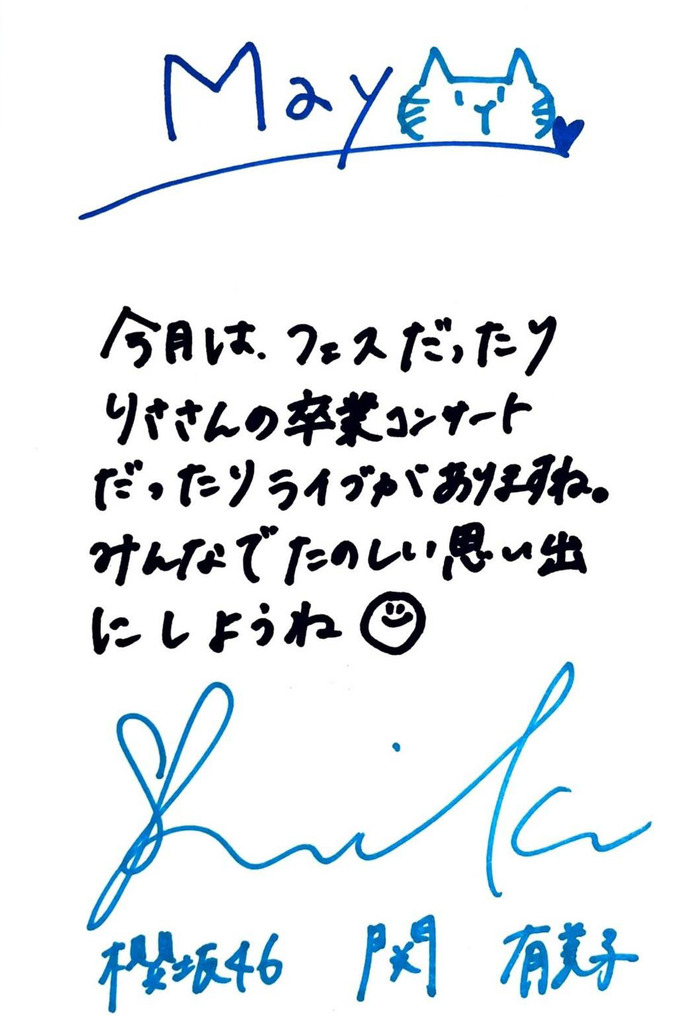 May
今月は、フェスだったり
りささんの卒業コンサート
だったりライブがありますね。
みんなでたのしい思い出
にしようね
Yumiko
櫻坂46 関 有美子